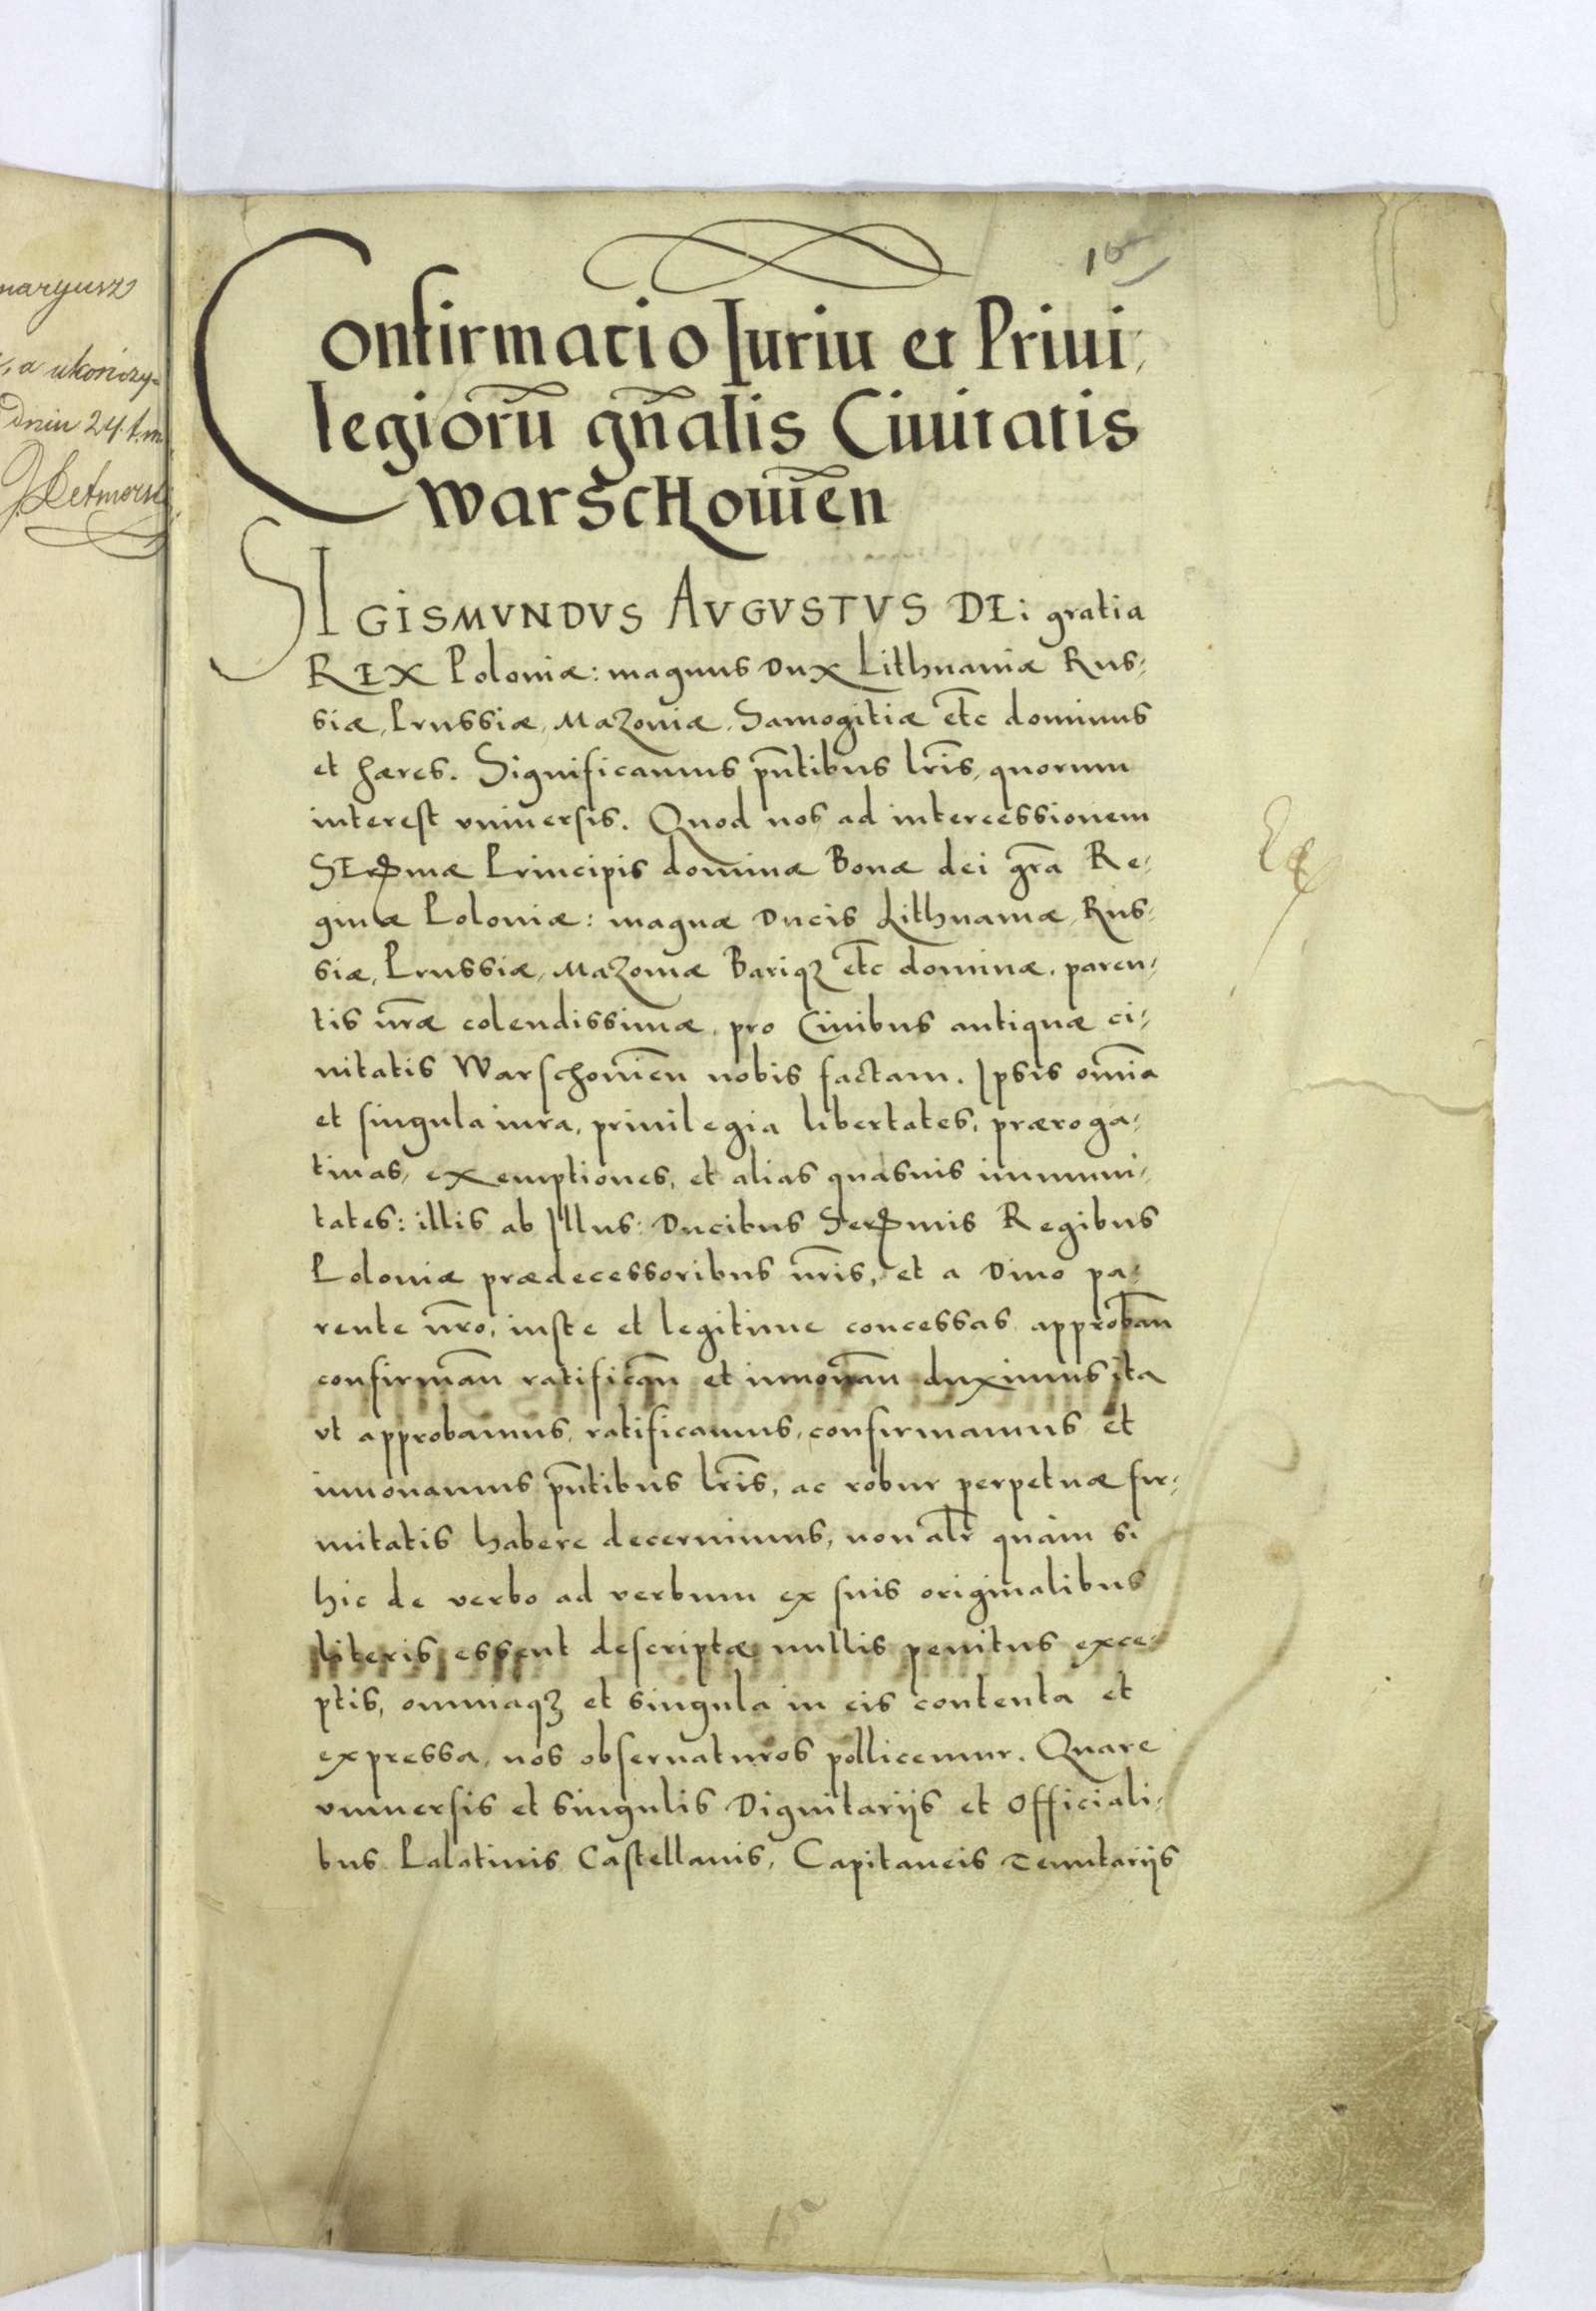 maryusz
, a ukończy-
dniu 24. t. m.
16
Confirmatio Iuriu et Priui,
legiorũ gñalis Ciuitatis
WarscHouieñ
SIGISMVNDVS AVGVSTVS DEi gratia
REX Poloniæ: magnus Dux Lithuaniæ Rus,
siæ, Prussiæ, Mazouiæ, Samogitiæ etc dominus
et hæres. Significamus pñtibus lr̃is, quorum
interest vniuersis. Quod nos ad intercessionem
SErꝸmæ Principis dominæ Bonæ dei gr̃a Re,
ginæ Poloniæ: magnæ Ducis Lithuaniæ, Rus,
siæ, Prussiæ, Mazouiæ Bariqꝫ etc dominæ, paren,
tis nr̃æ colendissimæ, pro Ciuibus antiquæ ci,
uitatis Warschouieñ nobis factam. Ipsis om̃ia
et singula iura, priuilegia libertates, præroga,
tiuas, exemptiones, et alias quasuis immuni,
tates: illis ab Illus: Ducibus Serꝸmis Regibus
Poloniæ prædecessoribus nr̃is, et a Diuo pa,
rente nr̃o, iuste et legitime concessas approbañ
confirmañ ratificañ et innouañ duximus ita
vt approbamus, ratificamus, confirmamus et
innouamus pñtibus lr̃is, ac robur perpetuæ fir,
mitatis habere decernimus, non alr̃ quàm si
hic de verbo ad verbum ex suis originalibus
literis essent descriptæ nullis penitus exce,
ptis, omniaqꝫ et singula in eis contenta et
expressa, nos obseruaturos pollicemur. Quare
vniuersis et singulis Dignitarijs et Officiali,
bus Palatinis Castellanis, Capitaneis Tenutarijs